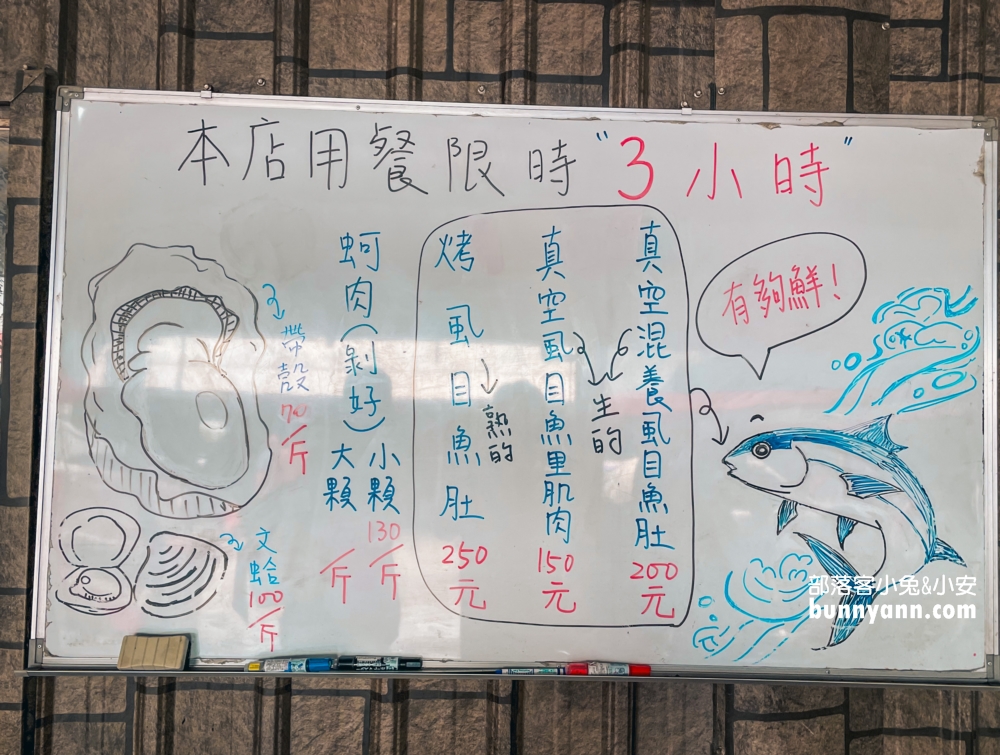 本店用餐限時"3小時"
有夠鮮！
真空混養虱目魚肚
200元
真空虱目魚里肌肉
150元
生的
烤虱目魚肚
250元
熟的
蚵肉（剝好）
小顆
130/斤
大顆
/斤
帶殼
70/斤
文蛤
100/斤
部落客小兔&小安
bunnyann.com